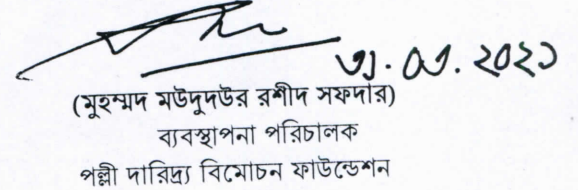 ৩১.০৩.২০২১
(মুহম্মদ মউদুদউর রশীদ সফদার)
ব্যবস্থাপনা পরিচালক
পল্লী দারিদ্র্য বিমোচন ফাউন্ডেশন